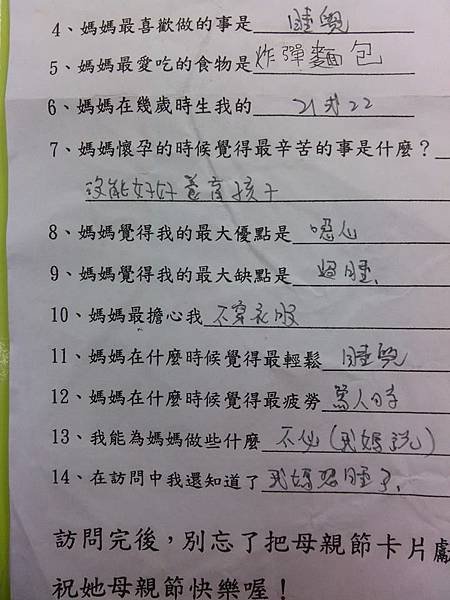 4、媽媽最喜歡做的事是 睡覺
5、媽媽最愛吃的食物是炸彈麵包
6、媽媽在幾歲時生我的 21或22
7、媽媽懷孕的時候覺得最辛苦的事是什麼?
沒能好好養育孩子
8、媽媽覺得我的最大優點是 噁心
9、媽媽覺得我的最大缺點是 好睡、
10、媽媽最擔心我 不穿衣服
11、媽媽在什麼時候覺得最輕鬆 睡覺
12、媽媽在什麼時候覺得最疲勞 罵人時
13、我能為媽媽做些什麼 不必(我媽說)
14、在訪問中我還知道了 我媽想睡了、
訪問完後,別忘了把母親節卡片獻
祝她母親節快樂喔!